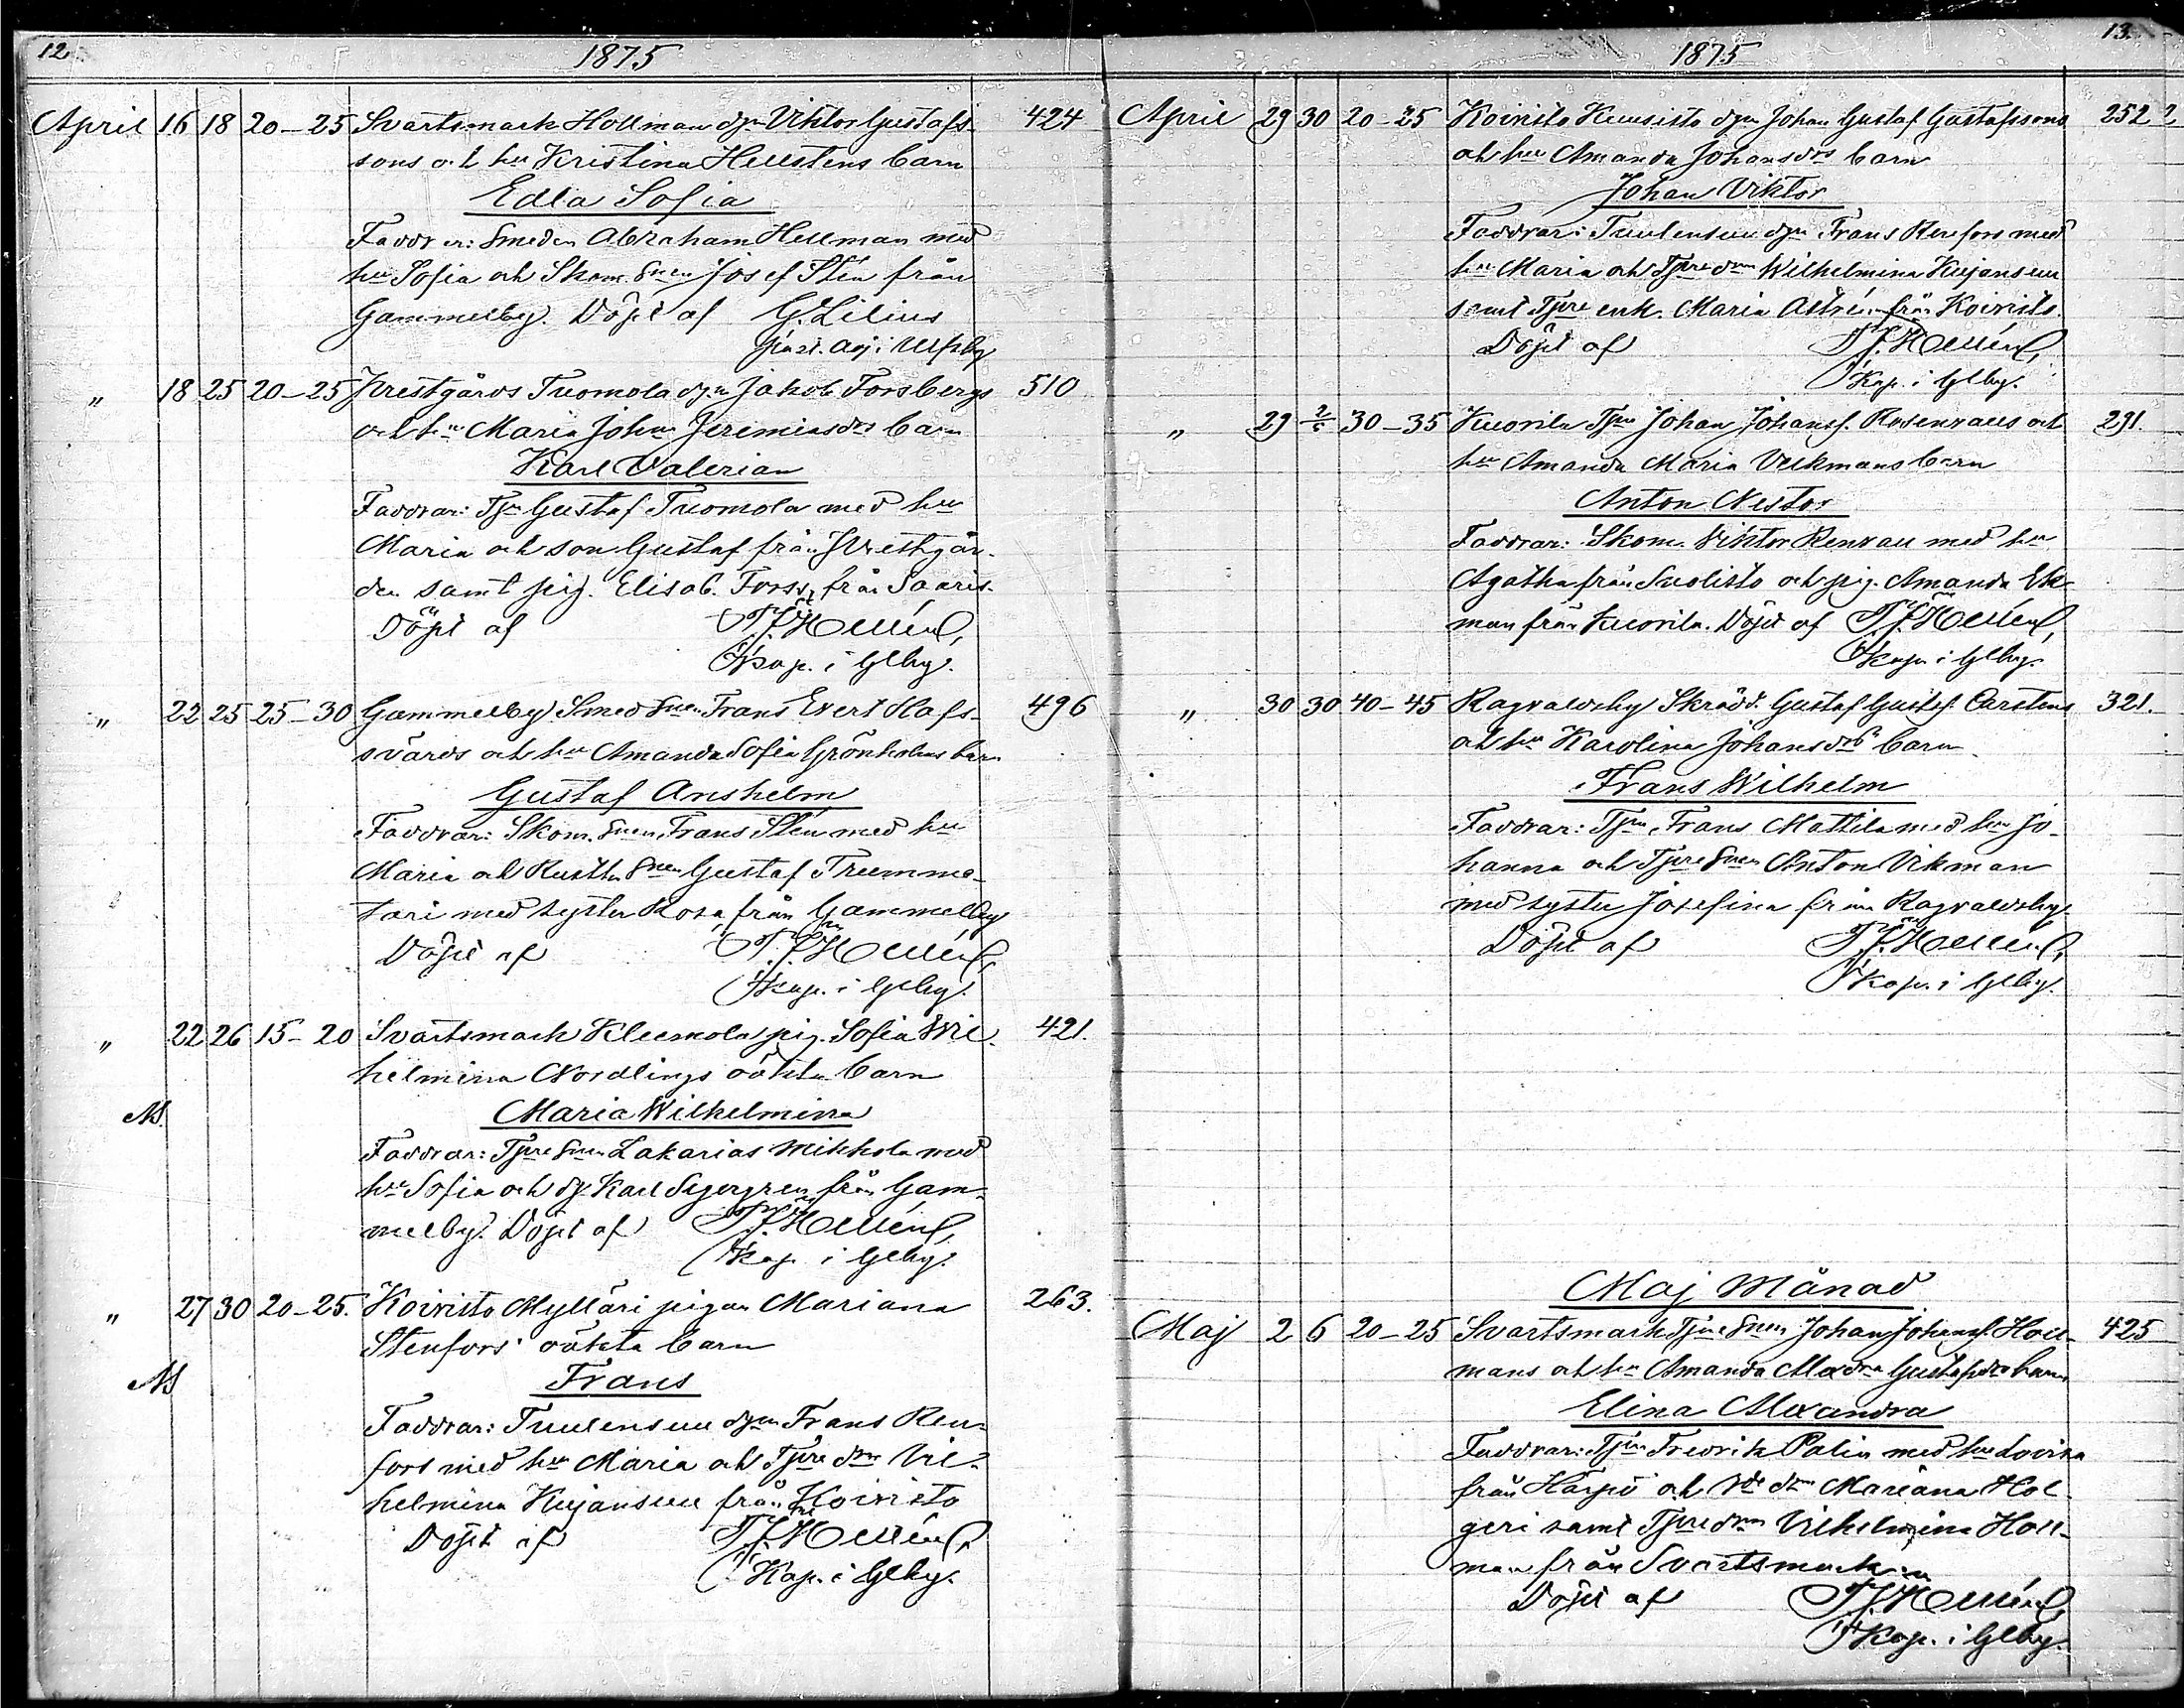 12.
1875
April 16 18 20-25 Svartsmark Hollman dgn Viktor Gustafs- 424
sons och hu Kristina Hellstens barn
Edla Sofia
Faddrar: Smeden Abraham Hellman med
hu Sofia och Skom. Snen Josef Stén från
Gammelby. Döpt af G. Lilius
past. adj. i Ulfsby
" 18 25 20-25 Prestgårds Tuomola dgn Jakob Forsbergs 510
och hu Maria Joh:a Jeremiasdrs barn
Karl Valerian
Faddrar: Tjn Gustaf Tuomola med hu
Maria och son Gustaf från Prestgår-
den samt pig. Elisab. från Saaris.
Döpt af
Kap. i Glby.
" 22 25 25-30 Gammelby Smed Snen Frans Evert Hafs- 496
svärds och hu Amanda Sofia Grönholms barn
Gustaf Anshelm
Faddrar: Skom. Snen Frans Stén med hu
Maria och Snen Gustaf Trumme-
tari med syster Rosa, från Gammelby
Döpt af
Kap. i Glby.
" 22 26 15-20 Svartsmark Kleemola pig. Sofia Wil- 421.
helmina Nordlings oäkta barn
Maria Wilhelmina
Faddrar: Tjre Snen Zakarias Mikkola med
hu Sofia och dg. Karl från Gam-
melby. Döpt af
Kap. i Glby.
" 27 30 20-25. Koivisto Mylläri pigan Mariana 263.
Stenfors' oäkta barn
Frans
Faddrar: Tuulensuu dgn Frans Ren-
fors med hu Maria och Tjre drn Vil-
helmina Kujansuu från Koivisto
Döpt af
Kap. i Glby.
13.
1875
April 29 30 20-25 Koivisto Kuusisto dgn Johan Gustaf Gustafssons 252
och hu Amanda Johansdrs barn
Johan Viktor
Faddrar: Tuulensuu dgn Frans Renfors med
hu Maria och Tjre drn Wilhelmina Kujansuu
samt Tjre enk. Maria från Koivisto.
Döpt af
Kap. i Glby.
" 29 2/5 30-35 Kuorila Tjrn Johan Johansf. och 291.
hu Amanda Maria Vekmans barn
Anton Nestor
Faddrar: Skom. Viktor med hu
Agatha från Suolisto och pig. Amanda Ek-
man från Kuorila. Döpt af
Kap. i Glby.
" 30 30 40-45 Ragvaldsby Skrädd. Gustaf Gustafsf. Carstens 321.
och hu Karolina Johansdrs barn
Frans Wilhelm
Faddrar: Tjrn Frans Mattila med hu Jo-
hanna och Tjre Snen Anton Vikman
med syster Josefina från Ragvaldsby.
Döpt af
Kap. i Glby.
Maj Månad
Maj 2 6 20-25 Svartsmark Tjre Snen Johan Johansf. Holl- 425
mans och hu Amanda Alexdra Gustafsdrs barn
Elina Alexandra
Faddrar: Tjrn Fredrik Palin med hu Lovisa
från Harjo och drn Mariana Hol-
geri samt Tjre drn Vilhelmina Holl-
man från Svartsmark
Döpt af
Kap. i Glby.